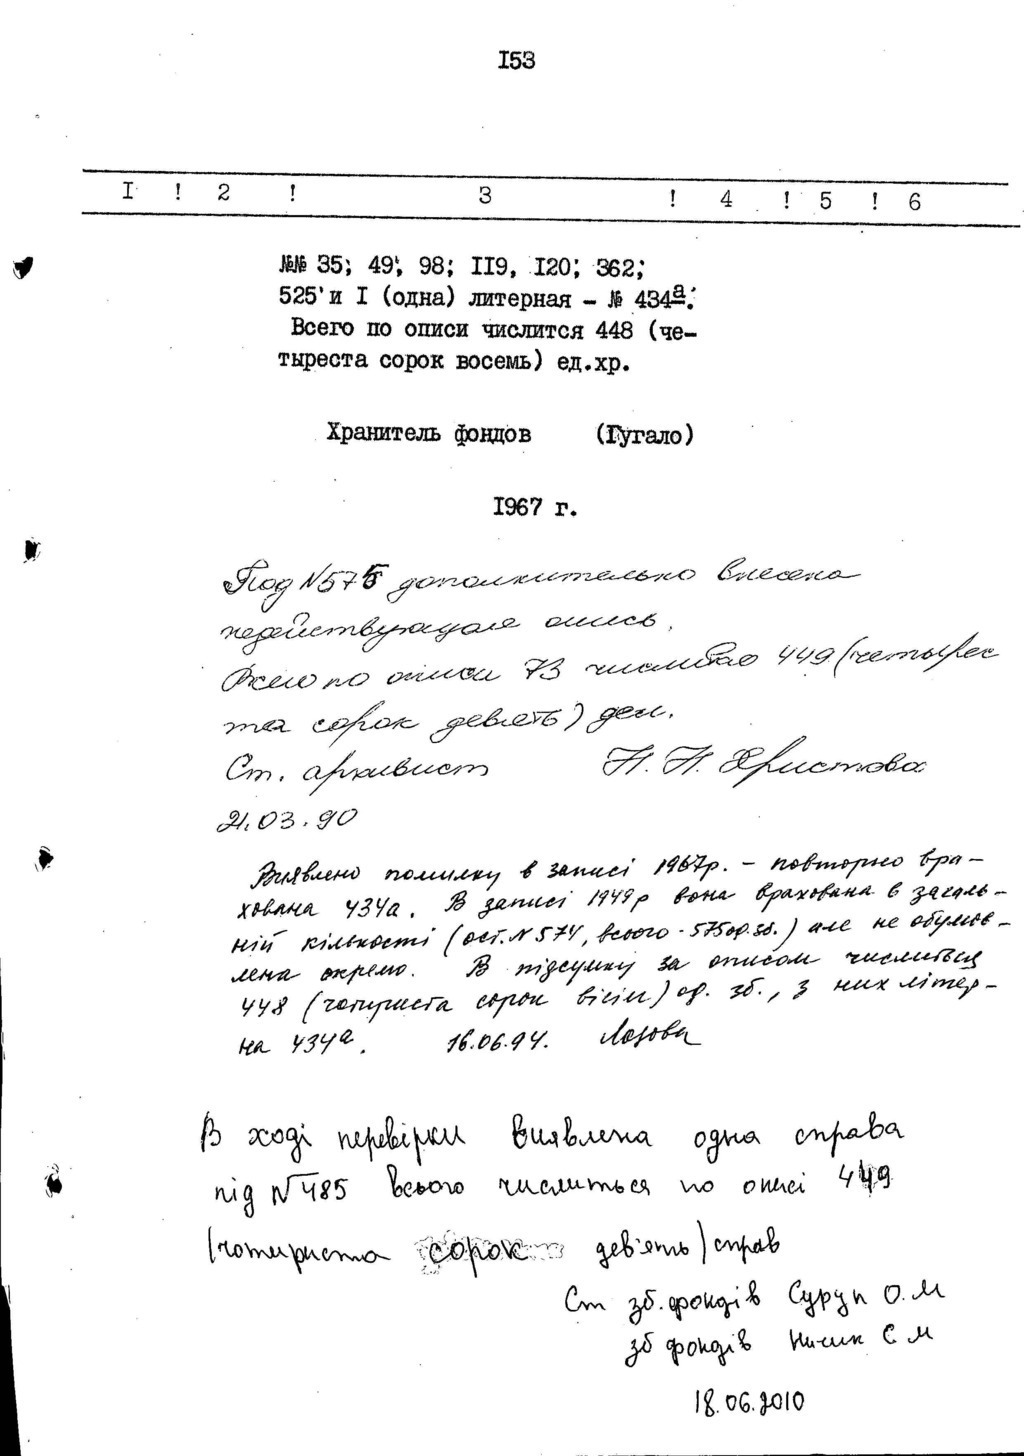 I53
I ! 2 ! 3 ! 4 ! 5 ! 6
№№ 35; 49; 98; II9, I20; 362;
525 и I (одна) литерная - № 434а.
Всего по описи числится 448 (че-
тыреста сорок восемь) ед.хр.
Хранитель фондов (Гугало)
I967 г.
Под N575 дополнительно внесена
недействующая опись.
Всего по описи числится 449 (четырес
та сорок девять) дел.
Ст. архивист Н. Н. Христова
21.03.90
Виявлено помилку в записі 1967р. - повторно вра-
хована 434а. В записі 1949р вона врахована в загаль-
ній кількості (ост. N 574, всього - 575 од.зб.) але не обумов-
лена окремо. В підсумку за описом числиться
448 (чотириста сорок вісім) од. зб., з них літер-
на 434а. 16.06.94. Лозова
В ході перевірки виявлена одна справа
під N 485 всього числиться по описі 449
(чотириста сорок дев'ять) справ
Ст зб. фондів Суруп О. М
зб фондів С М
18.06.2010